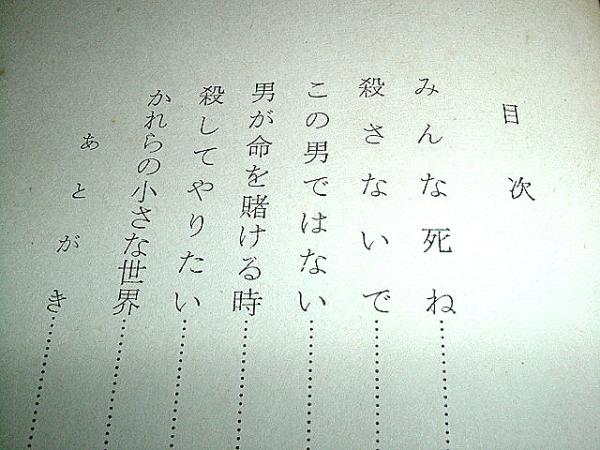 目次
みんな死ね
殺さないで
この男ではない
男が命を賭ける時
殺してやりたい
かれらの小さな世界
あとがき